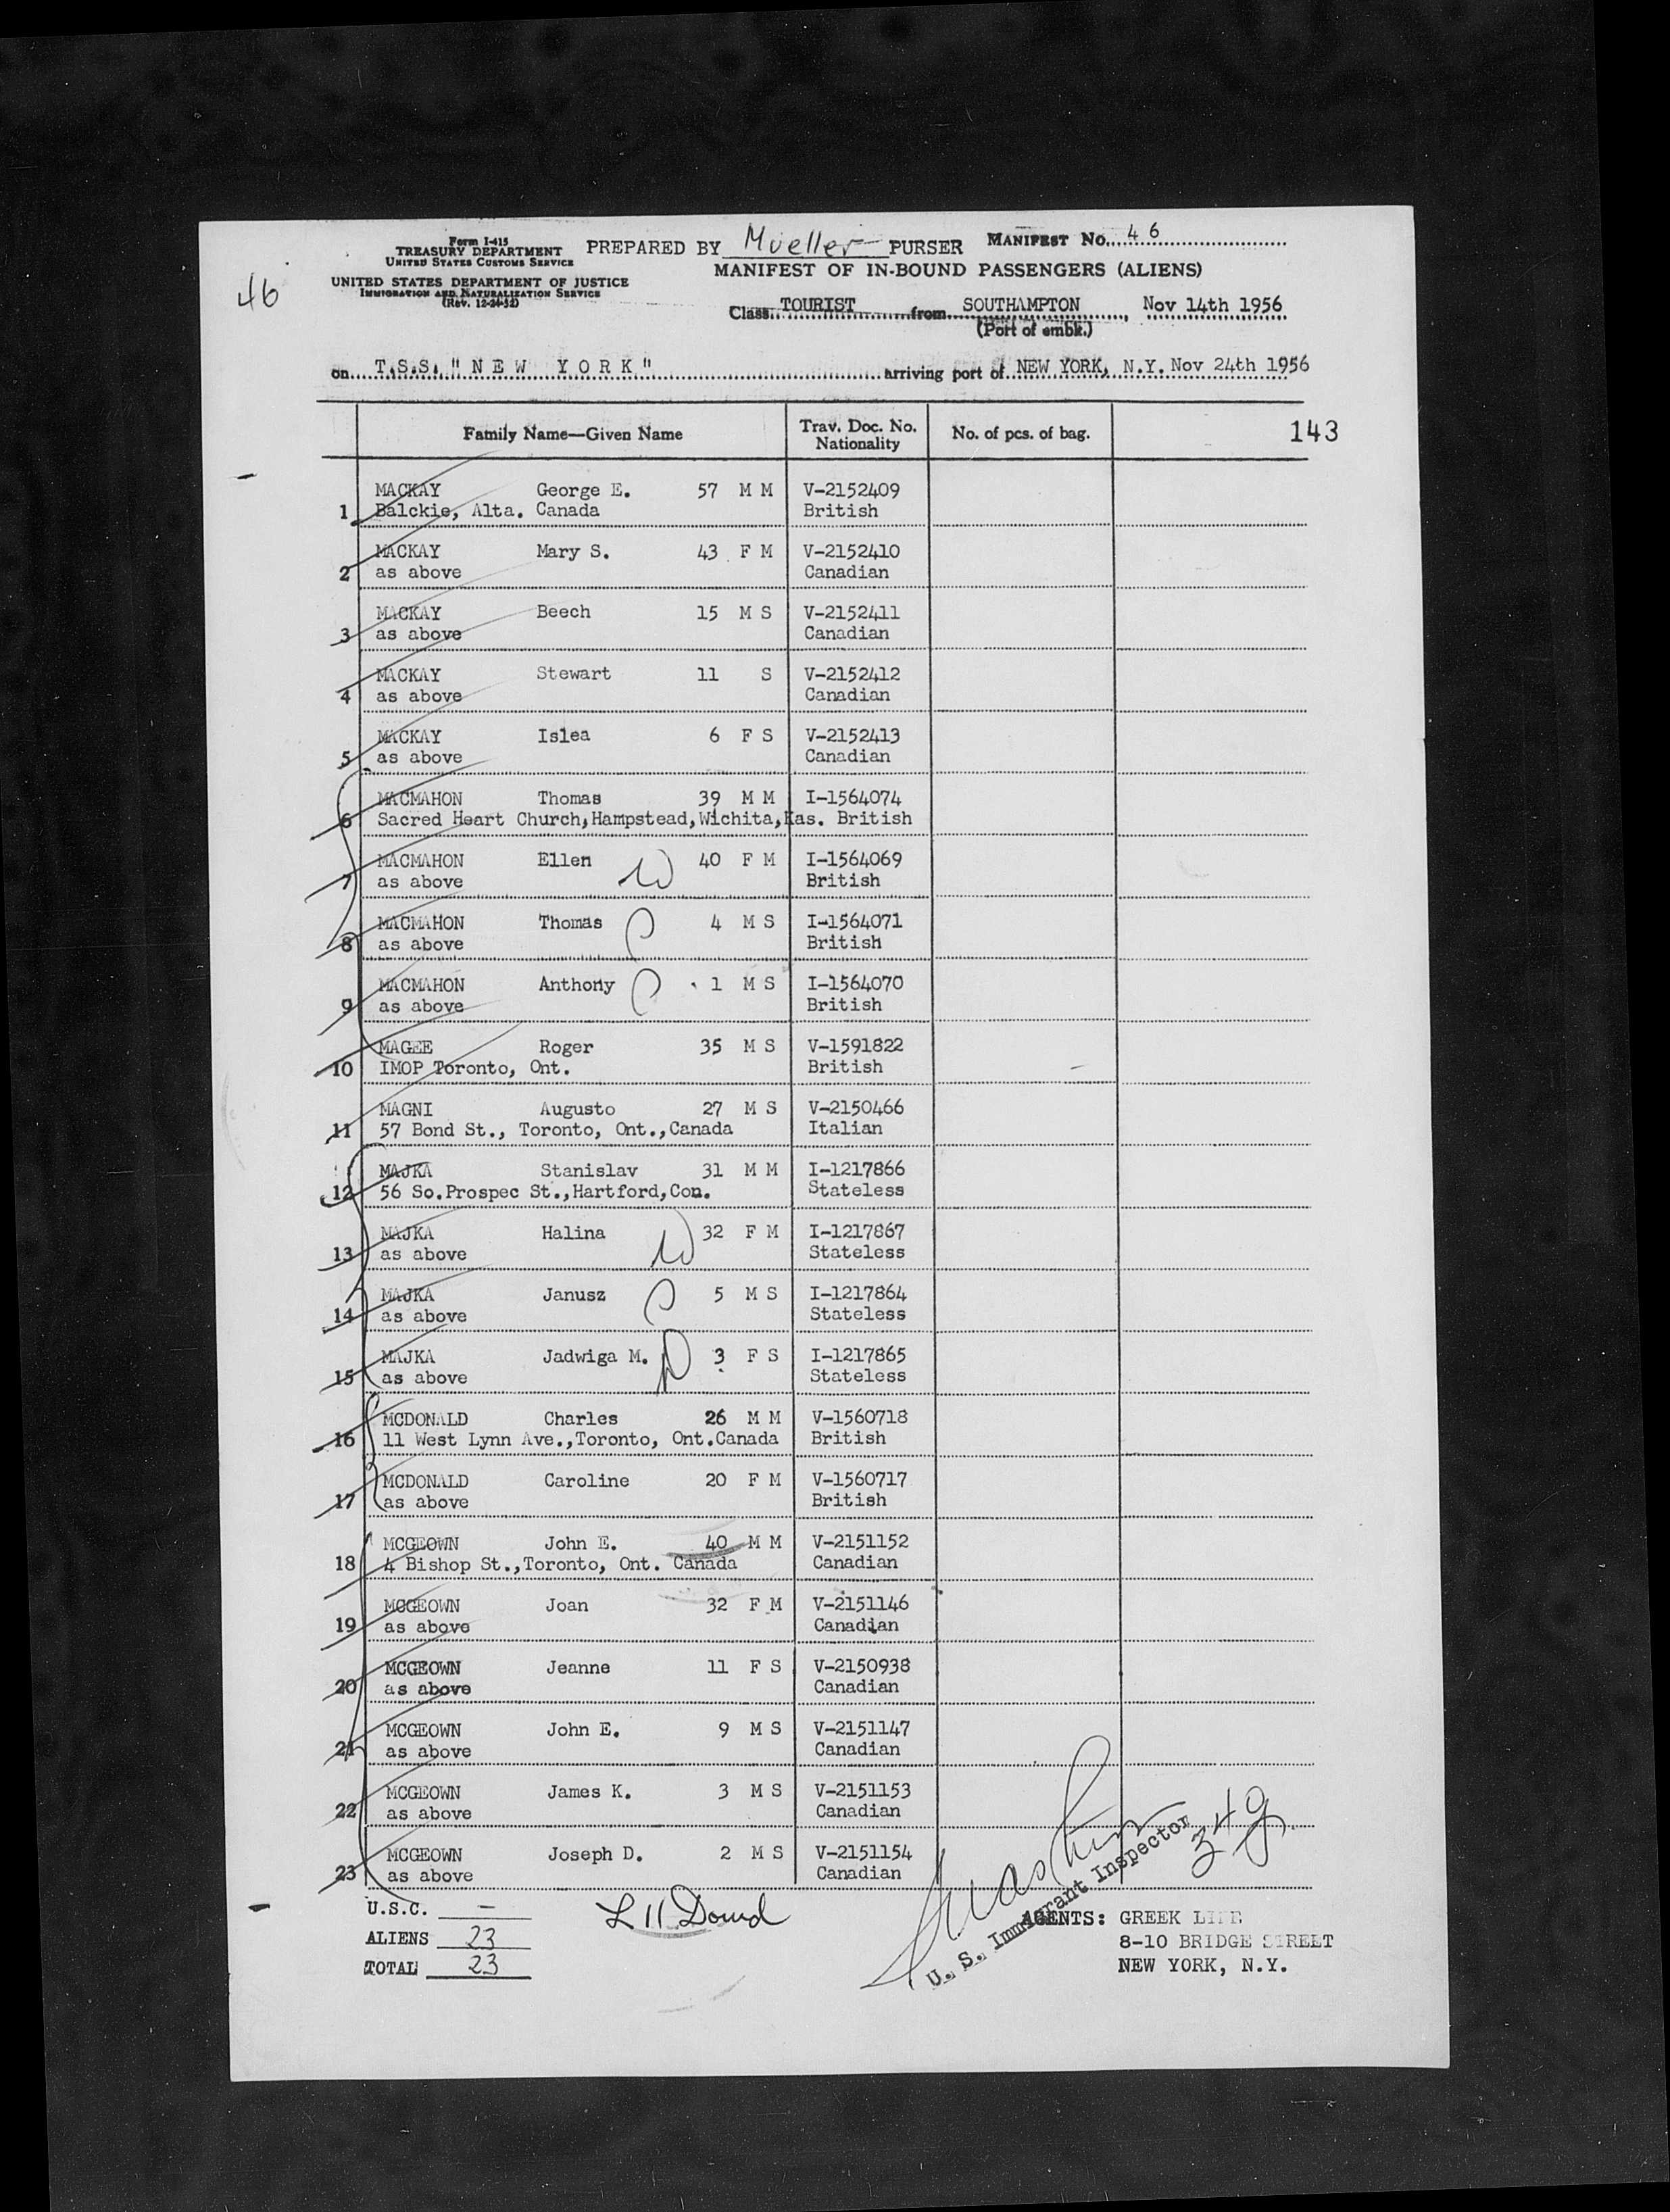 Form I-415
TREASURY DEPARTMENT
UNITED STATES CUSTOMS SERVICE
UNITED STATES DEPARTMENT OF JUSTICE
IMMIGRATION AND NATURALIZATION SERVICE
(Rev. 12-24-52)
46
PREPARED BY Mueller PURSER MANIFEST No. 46
MANIFEST OF IN-BOUND PASSENGERS (ALIENS)
Class TOURIST from SOUTHAMPTON, Nov 14th 1956
(Port of embk.)
on T.S.S. "NEW YORK" arriving port of NEW YORK, N.Y. Nov 24th 1956
Family Name—Given Name Trav. Doc. No. Nationality No. of pcs. of bag. 143
1 MACKAY George E. 57 M M V-2152409
Balckie, Alta. Canada British
2 MACKAY Mary S. 43 F M V-2152410
as above Canadian
3 MACKAY Beech 15 M S V-2152411
as above Canadian
4 MACKAY Stewart 11 S V-2152412
as above Canadian
5 MACKAY Islea 6 F S V-2152413
as above Canadian
6 MACMAHON Thomas 39 M M I-1564074
Sacred Heart Church, Hampstead, Wichita, Kas. British
7 MACMAHON Ellen W 40 F M I-1564069
as above British
8 MACMAHON Thomas 4 M S I-1564071
as above British
9 MACMAHON Anthony 1 M S I-1564070
as above British
10 MAGEE Roger 35 M S V-1591822
IMOP Toronto, Ont. British
11 MAGNI Augusto 27 M S V-2150466
57 Bond St., Toronto, Ont., Canada Italian
12 MAJKA Stanislav 31 M M I-1217866
56 So.Prospec St., Hartford, Con. Stateless
13 MAJKA Halina W 32 F M I-1217867
as above Stateless
14 MAJKA Janusz 5 M S I-1217864
as above Stateless
15 MAJKA Jadwiga M. 3 F S I-1217865
as above Stateless
16 MCDONALD Charles 26 M M V-1560718
11 West Lynn Ave., Toronto, Ont.Canada British
17 MCDONALD Caroline 20 F M V-1560717
as above British
18 MCGEOWN John E. 40 M M V-2151152
4 Bishop St., Toronto, Ont. Canada Canadian
19 MCGEOWN Joan 32 F M V-2151146
as above Canadian
20 MCGEOWN Jeanne 11 F S V-2150938
as above Canadian
21 MCGEOWN John E. 9 M S V-2151147
as above Canadian
22 MCGEOWN James K. 3 M S V-2151153
as above Canadian
23 MCGEOWN Joseph D. 2 M S V-2151154
as above Canadian
U.S.C. —
ALIENS 23
TOTAL 23
U. S. Immigrant Inspector
349
AGENTS: GREEK LINE
8-10 BRIDGE STREET
NEW YORK, N.Y.